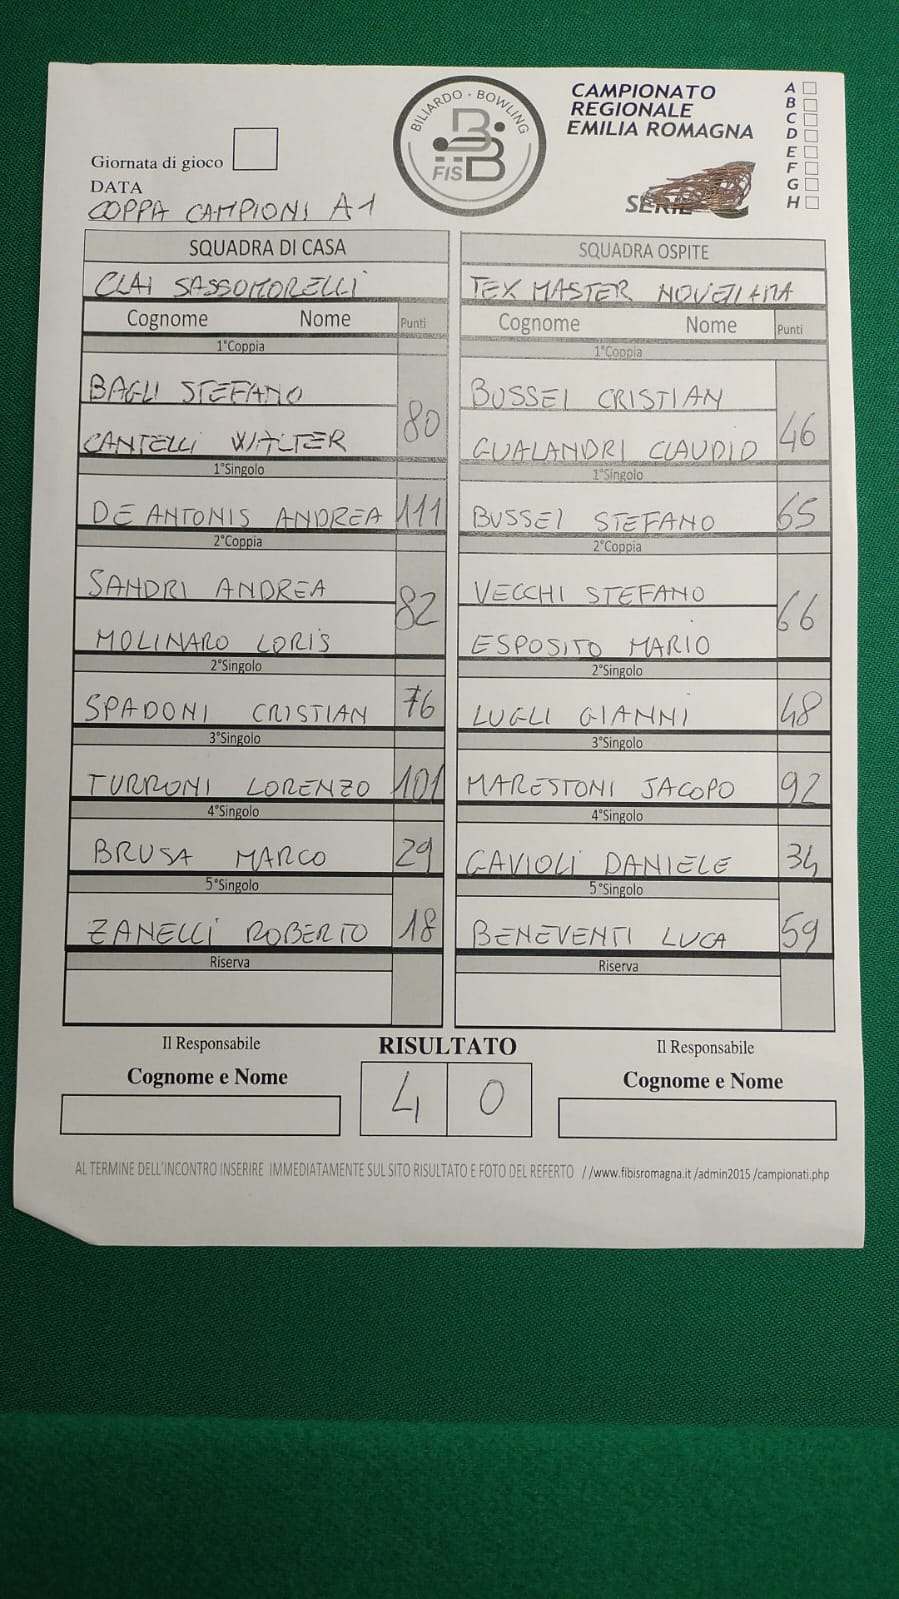 BILIARDO · BOWLING
FISBB
CAMPIONATO
REGIONALE
EMILIA ROMAGNA
SERIE
A
B
C
D
E
F
G
H
Giornata di gioco
DATA
COPPA CAMPIONI A1
SQUADRA DI CASA
CLAI SASSOMORELLI
Cognome Nome Punti
1°Coppia
BAGLI STEFANO
CANTELLI WALTER 80
1°Singolo
DE ANTONIS ANDREA 111
2°Coppia
SANDRI ANDREA
MOLINARO LORIS 82
2°Singolo
SPADONI CRISTIAN 76
3°Singolo
TURRONI LORENZO 101
4°Singolo
BRUSA MARCO 29
5°Singolo
ZANELLI ROBERTO 18
Riserva
SQUADRA OSPITE
TEX MASTER NOVELLARA
Cognome Nome Punti
1°Coppia
BUSSEI CRISTIAN
GUALANDRI CLAUDIO 46
1°Singolo
BUSSEI STEFANO 65
2°Coppia
VECCHI STEFANO
ESPOSITO MARIO 66
2°Singolo
LUGLI GIANNI 48
3°Singolo
MARESTONI JACOPO 92
4°Singolo
GAVIOLI DANIELE 34
5°Singolo
BENEVENTI LUCA 59
Riserva
Il Responsabile
Cognome e Nome
RISULTATO
4 0
Il Responsabile
Cognome e Nome
AL TERMINE DELL'INCONTRO INSERIRE IMMEDIATAMENTE SUL SITO RISULTATO E FOTO DEL REFERTO //www.fibisromagna.it/admin2015/campionati.php